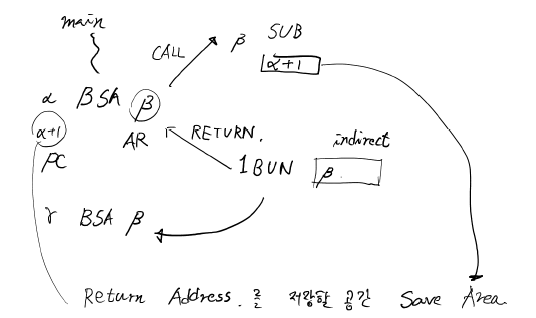 main
CALL
β SUB
α+1
α BSA β
α+1
AR
RETURN.
indirect
PC
1 BUN β.
γ BSA β
Return Address. 를 저장할 공간 Save Area.